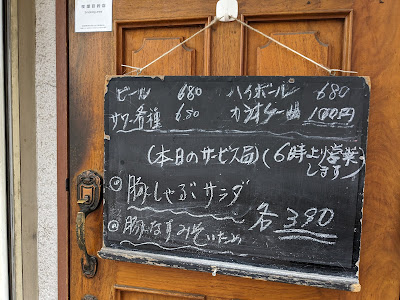 ビール 680 ハイボール 680
サワー各種 650 カラオケ一曲 100円
(本日のサービス品) (6時より営業
します)
豚しゃぶサラダ
各 390
豚なすみそいため